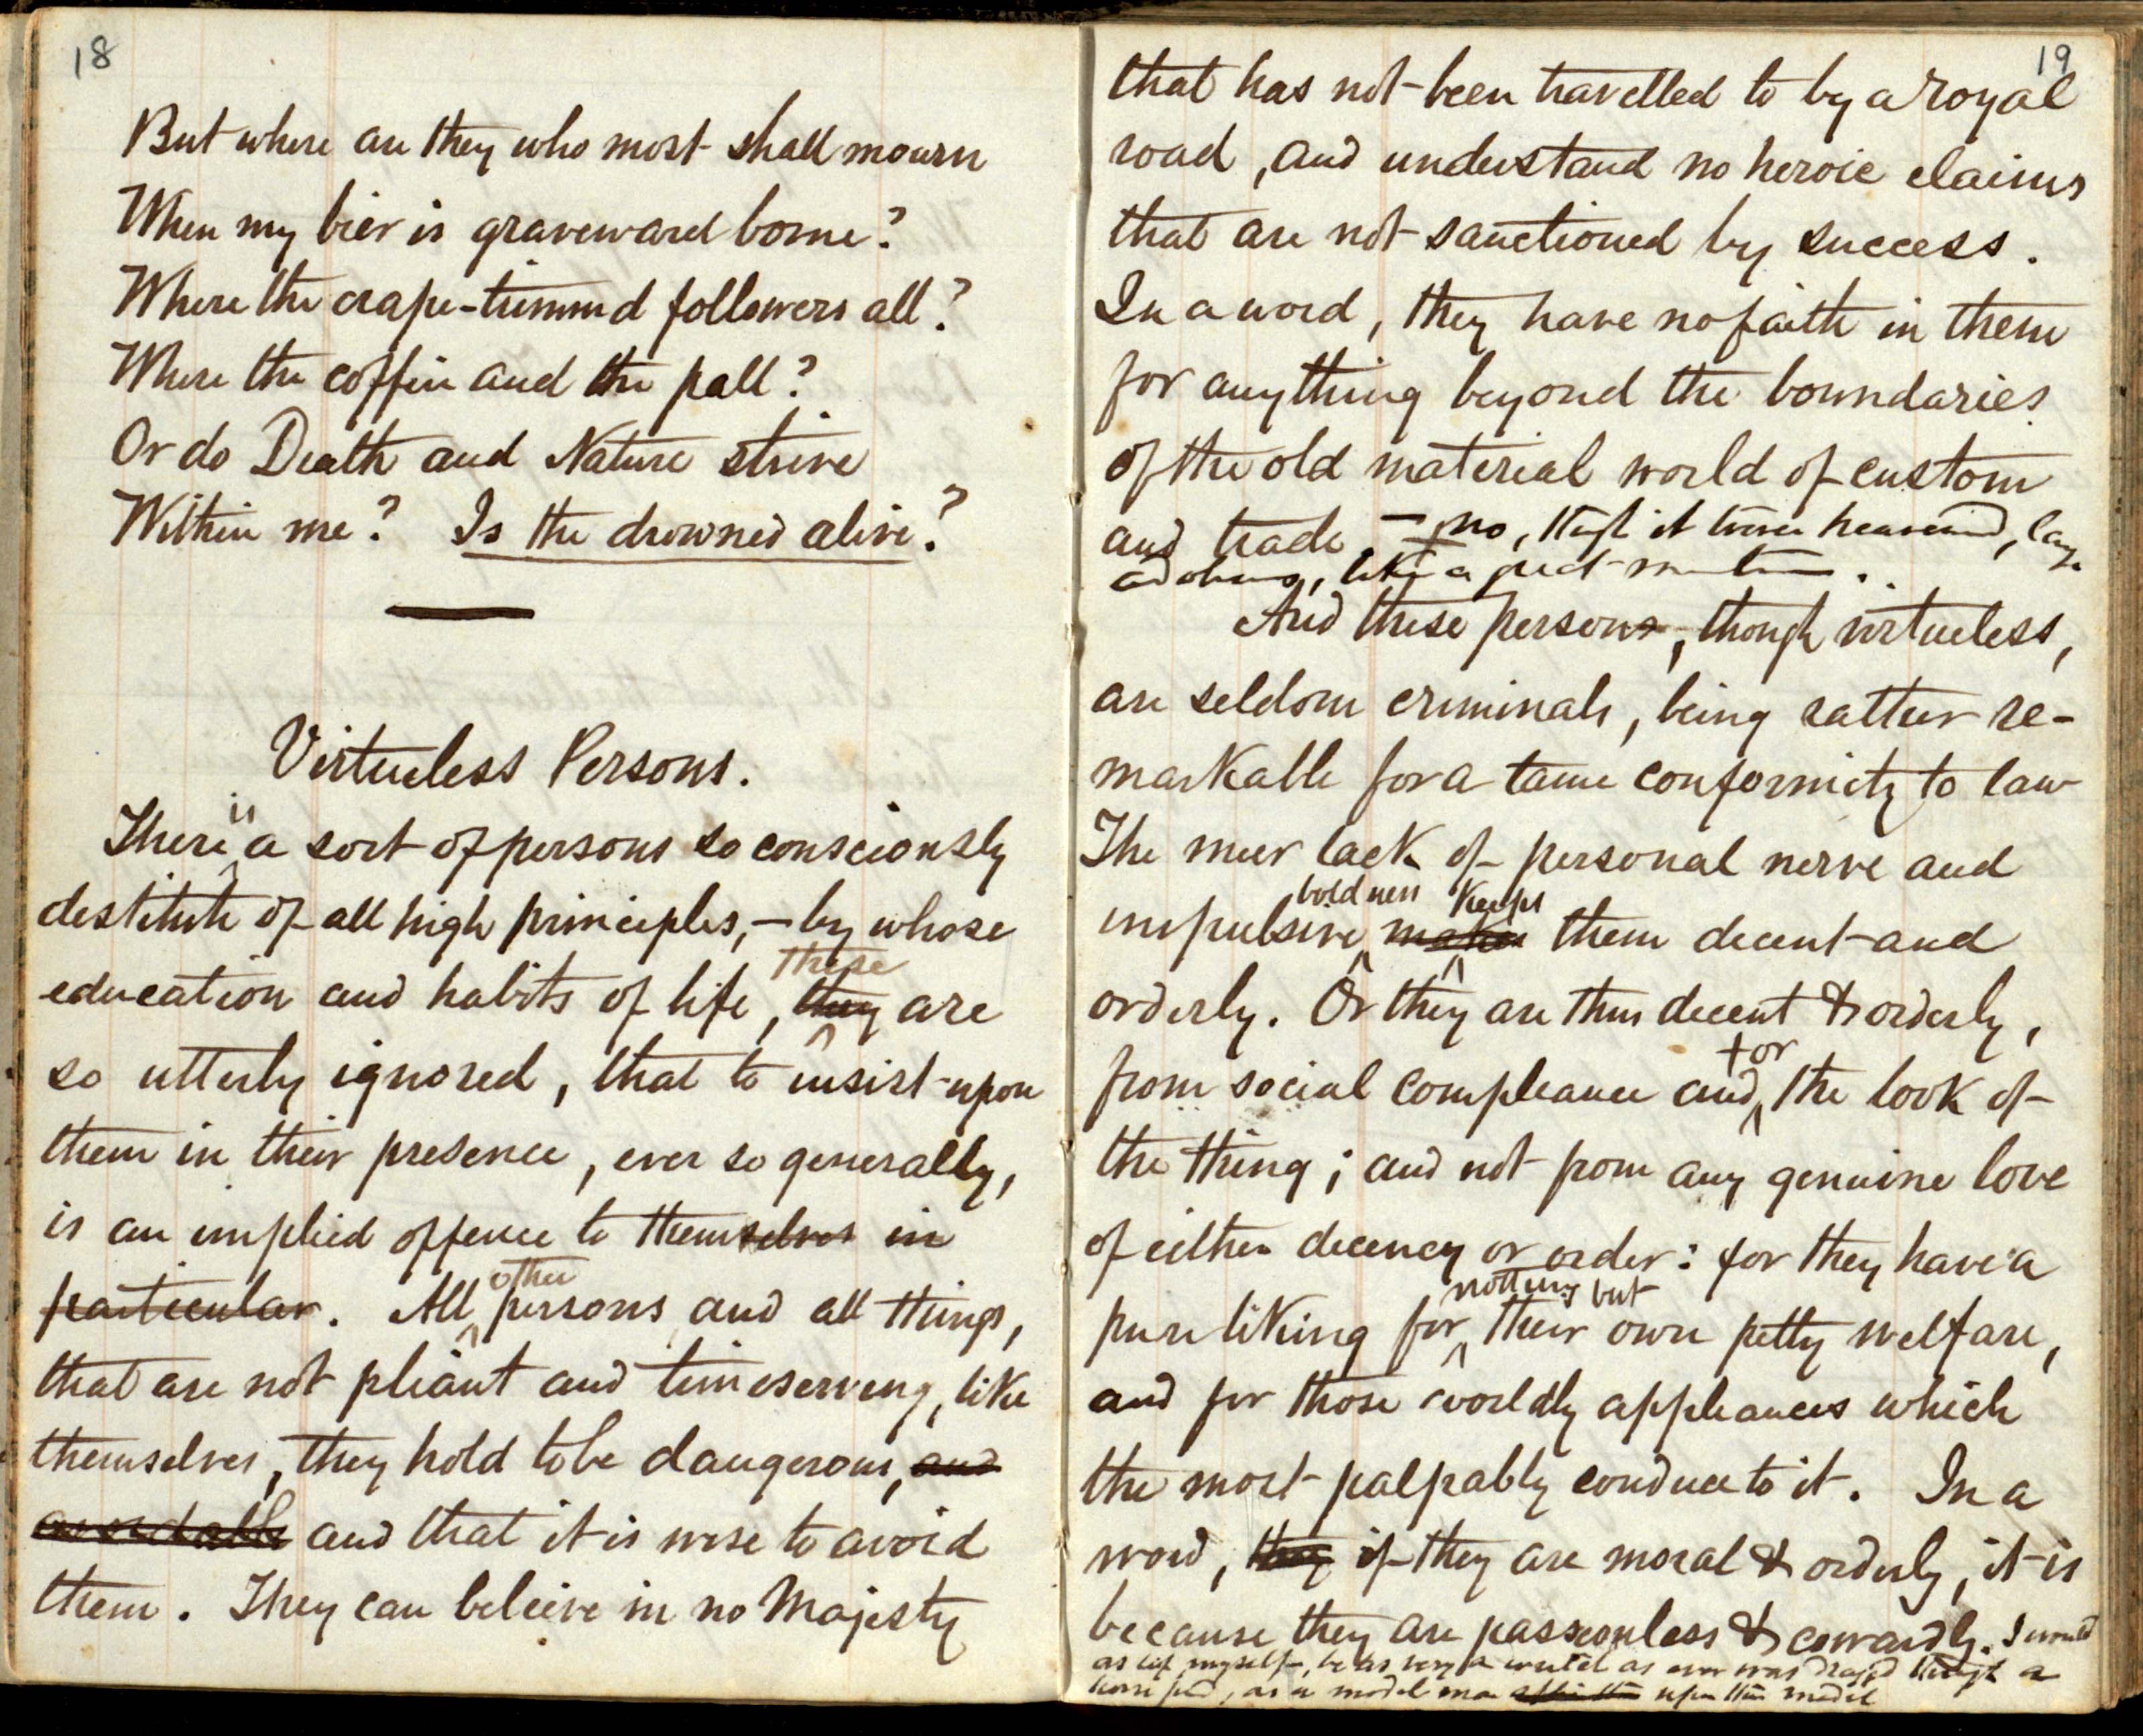 18
But where are they who most shall mourn
When my bier is graveward borne?
Where the crape-trimmd followers all?
Where the coffin and the pall?
Or do Death and Nature strive
Within me? Is the drowned alive?
Virtueless Persons.
There is a sort of persons so consciously
destitute of all high principles, — by whose
education and habits of life, they these are
so utterly ignored, that to insist upon
them in their presence, ever so generally,
is an implied offence to themselves in
particular. All other persons and all things,
that are not pliant and timeserving, like
themselves, they hold to be dangerous, and
avoidable and that it is wise to avoid
them. They can believe in no Majesty
19
that has not been travelled to by a royal
road, and understand no heroic claims
that are not sanctioned by success.
In a word, they have no faith in them
for anything beyond the boundaries
of the old material world of custom
and trade, — no, it heaved,
like a
And these persons, though virtueless,
are seldom criminals, being rather re-
markable for a tame conformity to law
The meer lack of personal nerve and
impulsive boldness makes keeps them decent and
orderly. Or they are thus decent & orderly,
from social compleance and for the look of
the thing; and not from any genuine love
of either decency or order: for they have a
pure liking for nothing but their own petty welfare,
and for those worldly appleances which
the most palpably conduce to it. In a
word, they if they are moral & orderly, it is
because they are passionless & cowardly. I would
as lief myself, be as very a as ever was dragd through a
horse pond, as a model man upon this model